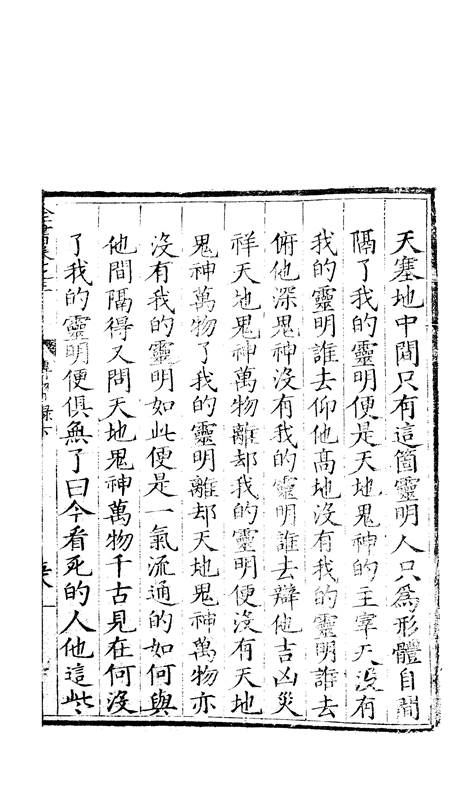 天塞地中間只有這箇靈明人只爲形體自間
隔了我的靈明便是天地鬼神的主宰天沒有
我的靈明誰去仰他高地沒有我的靈明誰去
俯他深鬼神沒有我的靈明誰去辯他吉凶災
祥天地鬼神萬物離却我的靈明便沒有天地
鬼神萬物了我的靈明離却天地鬼神萬物亦
沒有我的靈明如此便是一氣流通的如何與
他間隔得又問天地鬼神萬物千古見在何沒
了我的靈明便俱無了曰今看死的人他這些